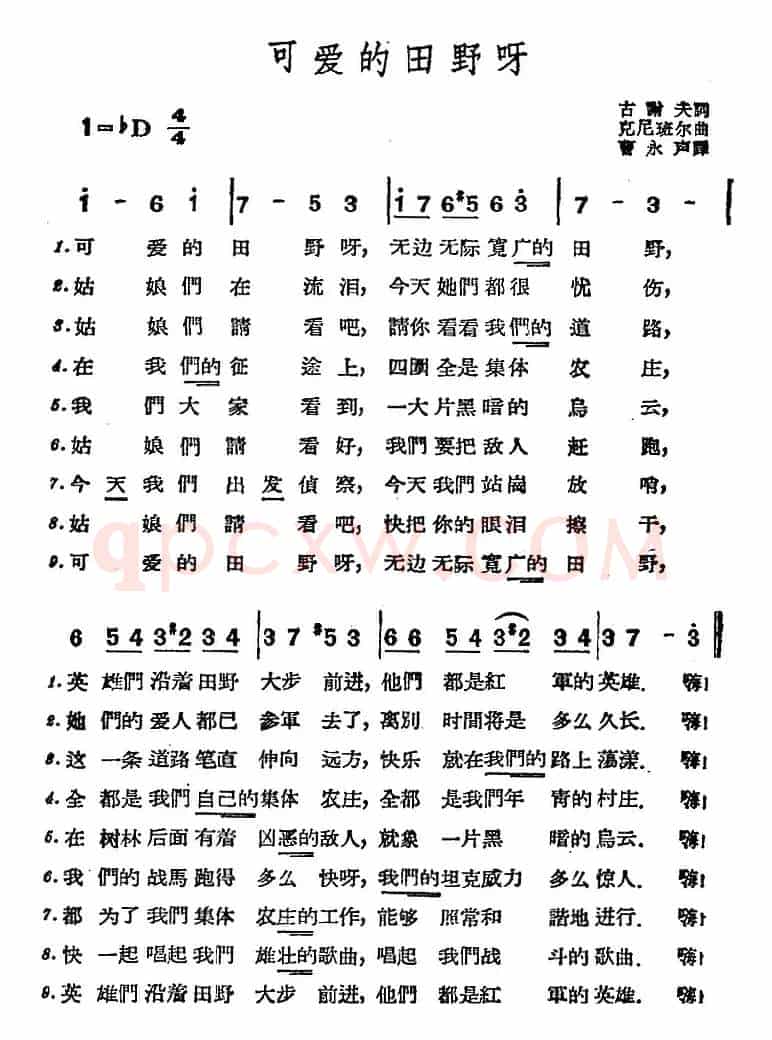 可爱的田野呀
1=♭D 4/4
古謝夫詞
克尼班尔曲
曹永声譯
i - 6 i | 7 - 5 3 | i7 6#5 6 3 | 7 - 3 -
1.可爱的田野呀,无边无际寬广的田野,
2.姑娘們在流泪,今天她們都很忧伤,
3.姑娘們請看吧,請你看看我們的道路,
4.在我們的征途上,四圍全是集体农庄,
5.我們大家看到,一大片黑暗的烏云,
6.姑娘們請看好,我們要把敌人赶跑,
7.今天我們出发偵察,今天我們站崗放哨,
8.姑娘們請看吧,快把你的眼泪擦干,
9.可爱的田野呀,无边无际寬广的田野,
qpcxw.COM
6 54 3#2 34 | 37 #5 53 | 66 54 3#2 34 | 37 - 3
1.英雄們沿着田野大步前进,他們都是紅軍的英雄.嗨!
2.她們的爱人都已参軍去了,离別时間将是多么久长.嗨!
3.这一条道路笔直伸向远方,快乐就在我們的路上蕩漾.嗨!
4.全都是我們自己的集体农庄,全都是我們年青的村庄.嗨!
5.在树林后面有着凶恶的敌人,就象一片黑暗的烏云.嗨!
6.我們的战馬跑得多么快呀,我們的坦克威力多么惊人.嗨!
7.都为了我們集体农庄的工作,能够照常和諧地进行.嗨!
8.快一起唱起我們雄壮的歌曲,唱起我們战斗的歌曲.嗨!
9.英雄們沿着田野大步前进,他們都是紅軍的英雄.嗨!